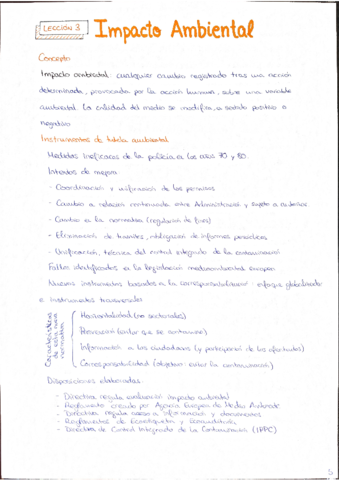 LECCIÓN 3
Impacto Ambiental
Concepto
Impacto ambiental: cualquier cambio registrado tras una acción
determinada, provocada por la acción humana, sobre una variable
ambiental. La calidad del medio se modifica, en sentido positivo o
negativo
Instrumentos de tutela ambiental
Medidas ineficaces de la policía en los años 70 y 80.
Intentos de mejora
- Coordinación y unificación de los permisos
- Cambio a relación continuada entre Administración y sujeto a autorizar
- Cambio en la normativa (regulación de fines)
- Eliminación de trámites, obligación de informes periódicos
- Unificación, técnica del control integrado de la contaminación
Fallos identificados en la legislación medioambiental europea
Nuevos instrumentos basados en la corresponsabilidad - enfoque globalizador
e instrumentos transversales
Características de esta nueva normativa
Horizontalidad (no sectoriales)
Prevención (evitar que se contamine)
Información a los ciudadanos (y participación de los afectados)
Corresponsabilidad (objetivo: evitar la contaminación)
Disposiciones elaboradas
- Directiva regula evaluación impacto ambiental
- Reglamento creado por Agencia Europea de Medio Ambiente
- Directiva regula acceso a información y documentos
- Reglamentos de Ecoetiqueta y Ecoauditoría
- Directiva de Control Integrado de la Contaminación (IPPC)
5